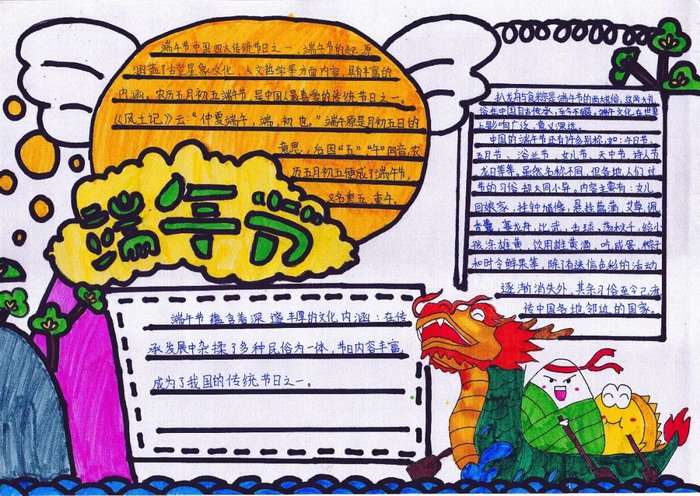 端午节中国四大传统节日之一，端午节的起源
涵盖了古老星象文化、人文哲学等方面内容，具有丰富的
内涵，农历五月初五端午节，是中国人最喜爱的传统节日之一。
《风土记》云：“仲夏端午，端，初也。”端午原是月初五日的
意思，后因“五”“午”同音，农
历五月初五便成了端午节，
又名重五、重午。
端午节
扒龙舟与食粽是端午节的两大礼俗，这两大礼
俗在中国自古传承，至今不辍，端午文化在世界
上影响广泛，意义深远。
中国的端午节还有许多别称，如：午日节、
五月节、浴兰节、女儿节、天中节、诗人节、
龙日等等，虽然名称不同，但各地人们过
节的习俗却大同小异，内容主要有：女儿
回娘家，挂钟馗像，悬挂菖蒲、艾草，佩
香囊，赛龙舟，比武，击球，荡秋千，给小
孩涂雄黄，饮用雄黄酒，吃咸蛋、粽子
和时令鲜果等，除了有迷信色彩的活动
逐渐消失外，其余习俗至今已流
传中国各地邻近的国家。
端午节蕴含着深邃丰厚的文化内涵：在传
承发展中杂揉了多种民俗为一体，节日内容丰富，
成为了我国的传统节日之一。